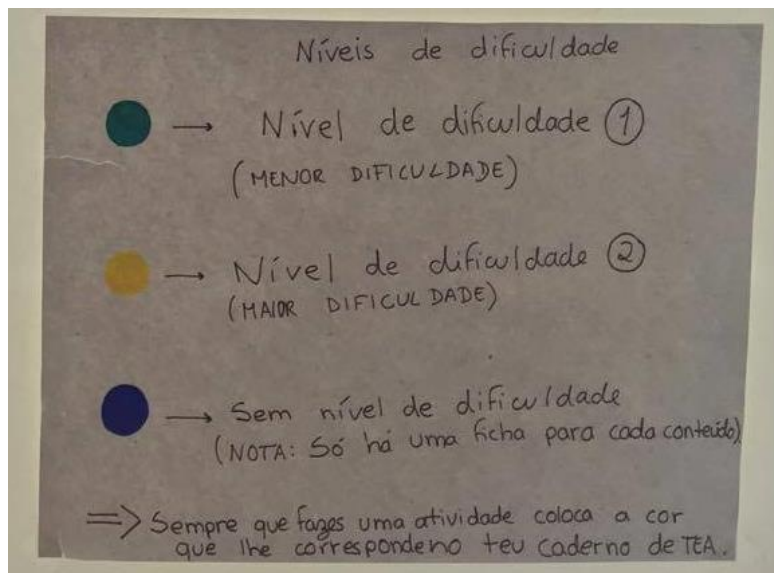 Níveis de dificuldade
→ Nível de dificuldade ①
(MENOR DIFICULDADE)
→ Nível de dificuldade ②
(MAIOR DIFICULDADE)
→ Sem nível de dificuldade
(NOTA: Só há uma ficha para cada conteúdo)
⇒ Sempre que fazes uma atividade coloca a cor
que lhe corresponde no teu caderno de TEA.